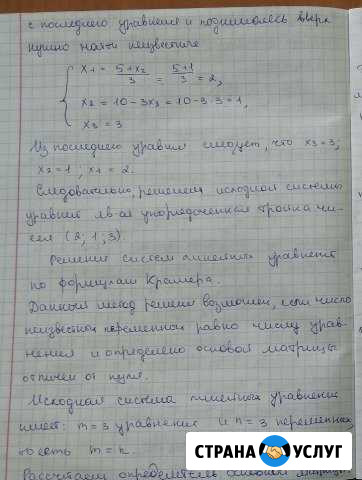 с последнего уравнения и поднимаясь вверх
нужно найти неизвестные
x1 = 5+x2/3 = 5+1/3 = 2,
x2 = 10-3x3 = 10-3·3 = 1,
x3 = 3
Из последнего уравния следует, что x3=3;
x2=1; x1=2.
Следовательно, решением исходной системы
уравний яв-ая упорядоченная тройка чи-
сел (2; 1; 3).
Решение систем линейных уравнений
по формулам Крамера.
Данный метод решения возможен, если число
неизвестной переменной равно числу урав-
нения и определено основой матрицы
отличен от нуля.
Исходная система линейных уравнений
имеет: m=3 уравнения и n=3 переменных,
то есть m=n.
Рассчитаем определитель основной матрицы
СТРАНА УСЛУГ